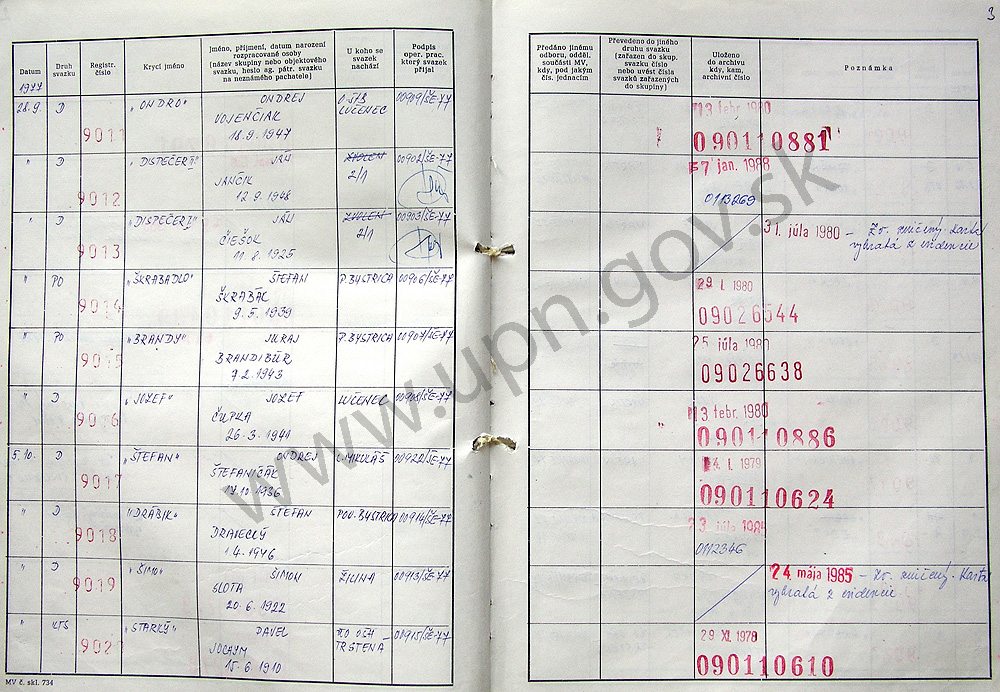 3
Datum
Druh svazku
Registr. číslo
Krycí jméno
Jméno, příjmení, datum narození rozpracované osoby (název skupiny nebo objektového svazku, heslo ag. pátr. svazku na neznámého pachatele)
U koho se svazek nachází
Podpis oper. prac. který svazek přijal
Předáno jinému odboru, odděl. součásti MV, kdy, pod jakým čís. jednacím
Převedeno do jiného druhu svazku (zařazen do skup. svazku číslo nebo uvést čísla svazků zařazených do skupiny)
Uloženo do archivu kdy, kam, archivní číslo
Poznámka
1977
28.9. D 9011 "ONDRO" ONDREJ VOJENČIAK 18.9.1947 O-ŠtB LUČENEC 00909/ŠE-77
13 febr. 1980
090110881
" D 9012 "DISPEČER" JÁN JANČIK 12.9.1948 ZVOLEN 2/1 00902/ŠE-77
7 jan. 1988
0113269
" D 9013 "DISPEČER" JÁN ČIEŠOK 11.8.1925 ZVOLEN 2/1 00903/ŠE-77
31. júla 1980 – Zv. zničený. Karta
vybratá z evidencie
" PO 9014 "ŠKRABADLO" ŠTEFAN ŠKRABÁK 9.5.1939 P.BYSTRICA 00906/ŠE-77
29 I. 1980
09026544
" PO 9015 "BRANDY" JURAJ BRANDIBÚR 7.2.1943 P.BYSTRICA 00907/ŠE-77
25 júla 1980
09026638
" D 9016 "JOZEF" JOZEF ČUPKA 26.3.1941 LUČENEC 00908/ŠE-77
13 febr. 1980
090110886
5.10. D 9017 "ŠTEFAN" ONDREJ ŠTEFANIČÁK 17.10.1936 L.MIKULÁŠ 00922/ŠE-77
4. I. 1979
090110624
" D 9018 "DRÁBIK" ŠTEFAN 1.4.1946 POV.BYSTRICA 00914/ŠE-77
23 júla
0112346
" D 9019 "ŠIMO" ŠIMON SLOTA 20.6.1922 ŽILINA 00913/ŠE-77
24 mája 1985 – Zv. zničený. Karta
vybratá z evidencie
" KTS 902 "STARKÝ" PAVEL JOCHYM 15.6.1910 TRSTENÁ 00915/ŠE-77
29 XI. 1978
090110610
MV č. skl. 734
www.upn.gov.sk